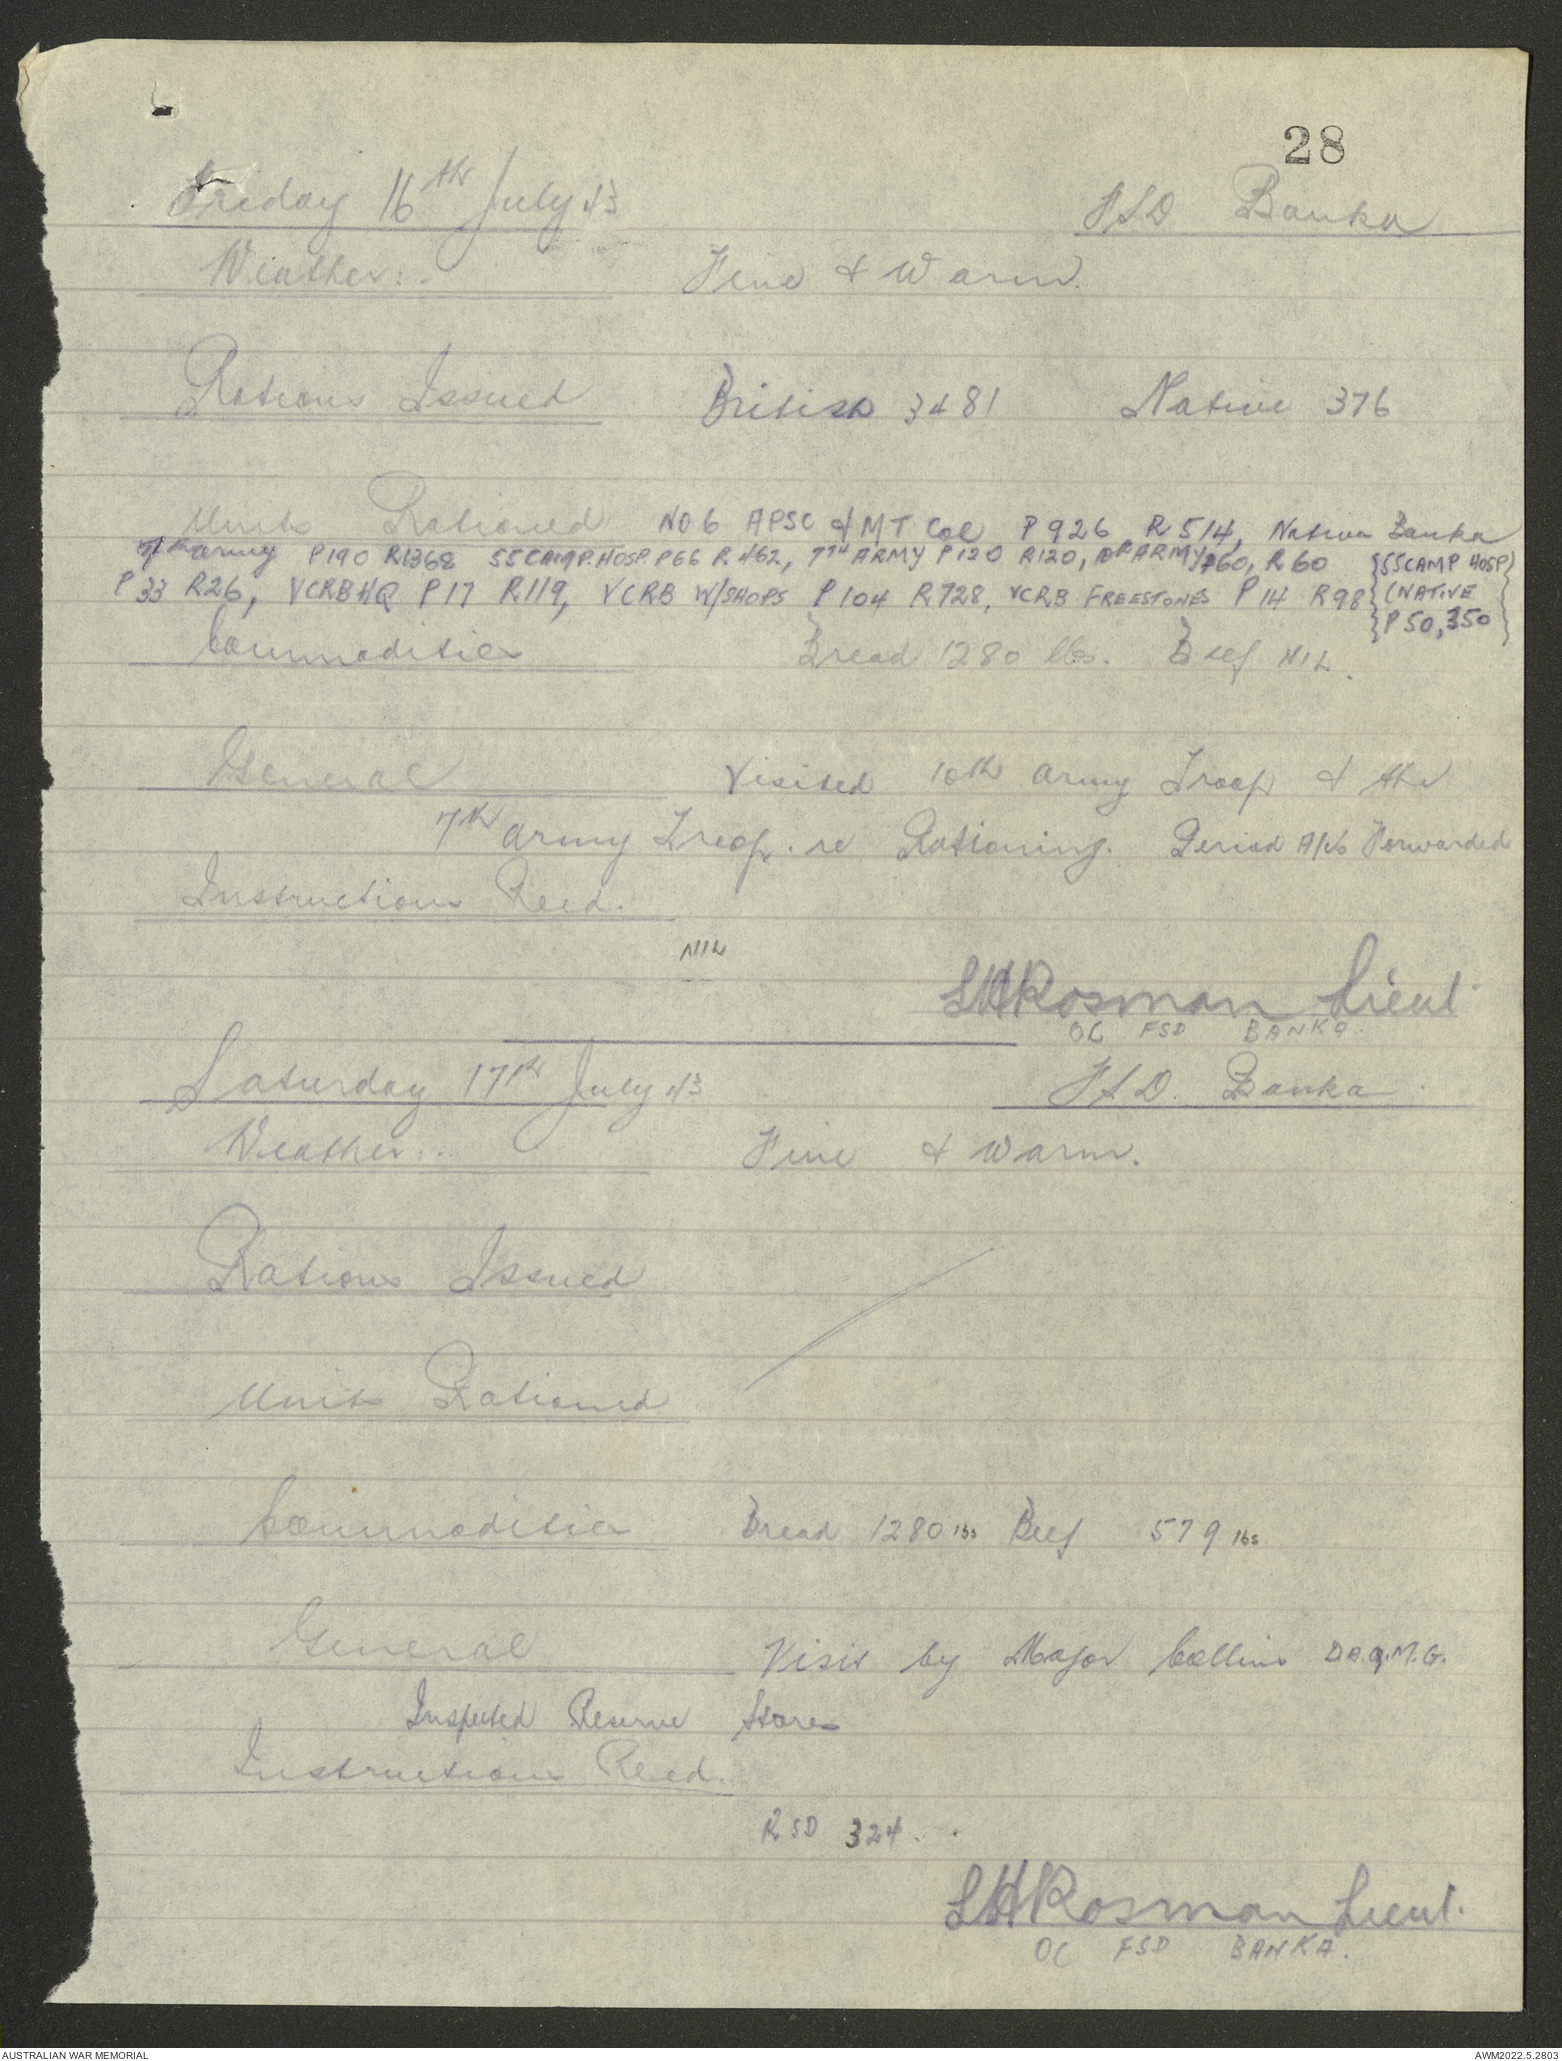 28
Friday 16th July 43 FSD Banka
Weather:- Fine & Warm.
Rations Issued British 3481 Native 376
Units Rationed NO 6 APSC & MT Col P 926 R 514, Native Banka
7th army P190 R1368 55CAMP.HOSP. P66 R.462, 7TH ARMY P120 R120, ARMY P60, R60 {55CAMP HOSP)
P 33 R26, VCRB HQ P17 R119, VCRB W/SHOPS P 104 R 728, VCRB FREESTONES P 14 R98 (NATIVE
} P 50, 350
Commodities Bread 1280 lbs. Beef NIL.
General Visited 10th army Troop & the
7th army Troop. re Rationing. Period A/cs Forwarded
Instructions Recd.
NIL
LHRosman Lieut.
OC FSD BANKA.
Saturday 17th July 43 FSD. Banka
Weather:- Fine & Warm.
Rations Issued
Units Rationed
Commodities Bread 1280 lbs Beef 579 lbs.
General Visit by Major Collins D.A.Q.M.G.
Inspected Reserve Stores
Instructions Recd.
RSD 324.
LHRosman Lieut.
OC FSD BANKA.
AUSTRALIAN WAR MEMORIAL AWM2022.5.2803